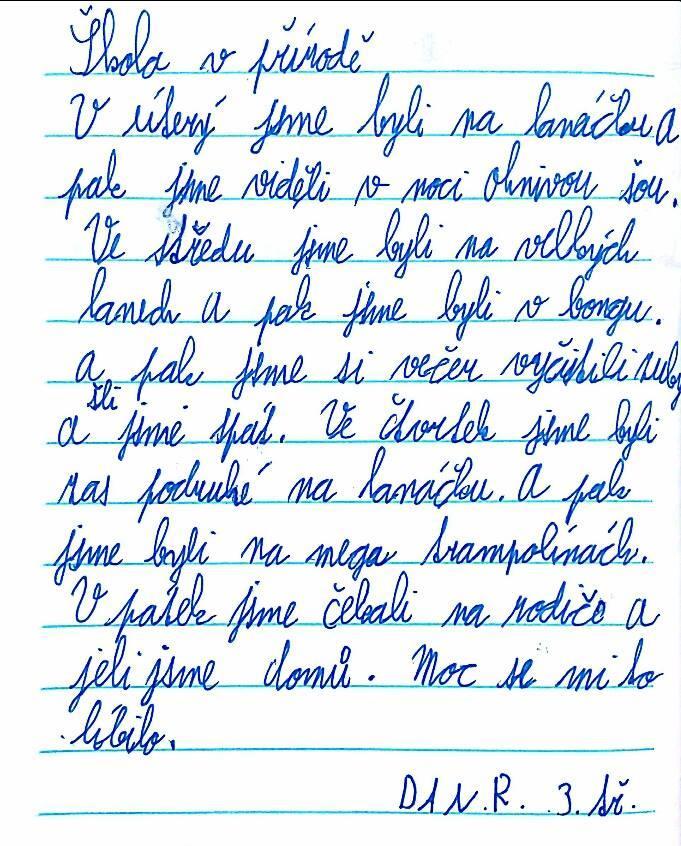 Škola v přírodě
V úterý jsme byli na lanáčku a
pak jsme viděli v noci ohnivou šou.
Ve středu jsme byli na velkých
lanech a pak jsme byli v bongu.
a pak jsme si večer vyčistili zuby
šli
a jsme spát. Ve čtvrtek jsme byli
zas podruhé na lanáčku. A pak
jsme byli na mega trampolínách.
V pátek jsme čekali na rodiče a
jeli jsme domů. Moc se mi to
líbilo.
D1 N.R. 3.tř.